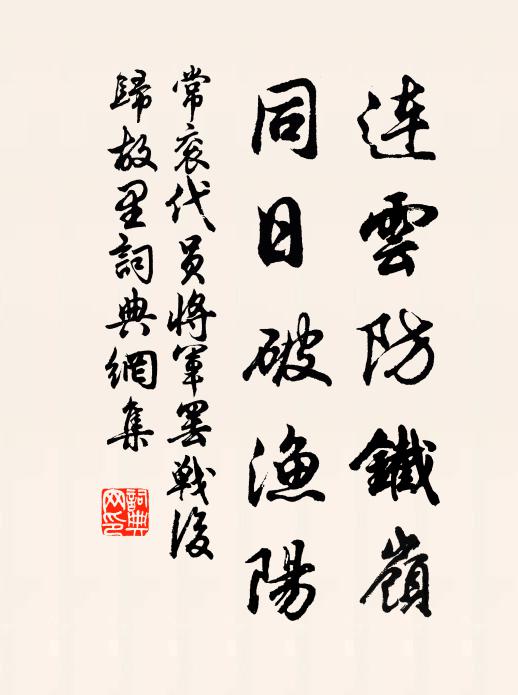 連雲防鐵嶺
同日破漁陽
常衮代员將軍罢戰後
歸故里詞典網集
詞典
网印